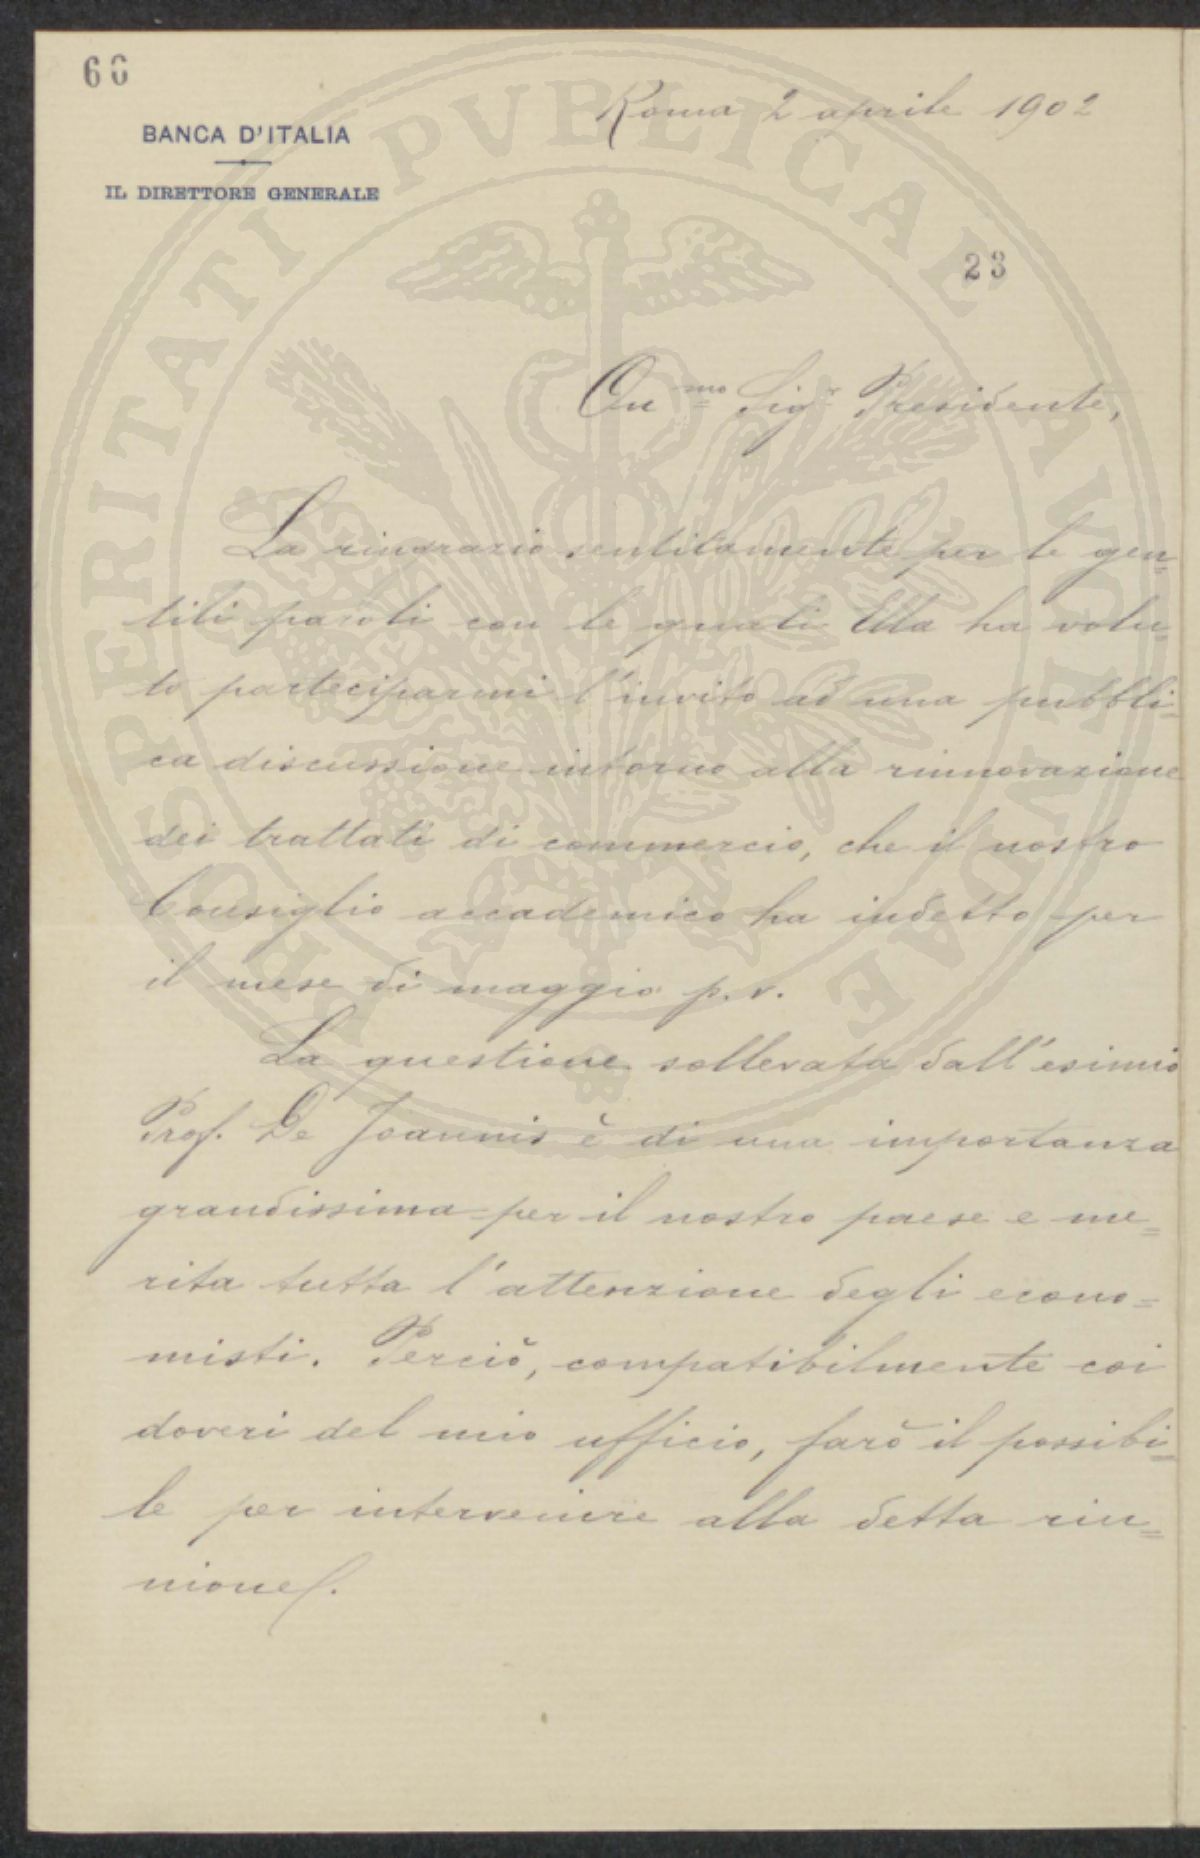 66
Roma 2 aprile 1902
BANCA D'ITALIA
IL DIRETTORE GENERALE
23
On.mo Sig.r Presidente,
La ringrazio sentitamente per le gen=
tili paroli con le quali Ella ha volu=
to parteciparmi l'invito ad una pubbli=
ca discussione intorno alla rinnovazione
dei trattati di commercio, che il nostro
Consiglio accademico ha indetto per
il mese di maggio p.v.
La questione sollevata dall'esimio
Prof. De Joannis è di una importanza
grandissima per il nostro paese e me=
rita tutta l'attenzione degli econo=
misti. Perciò, compatibilmente coi
doveri del mio ufficio, farò il possibi=
le per intervenire alla detta riu=
nione.
PROSPERITATI PVBLICAE AVGENDAE